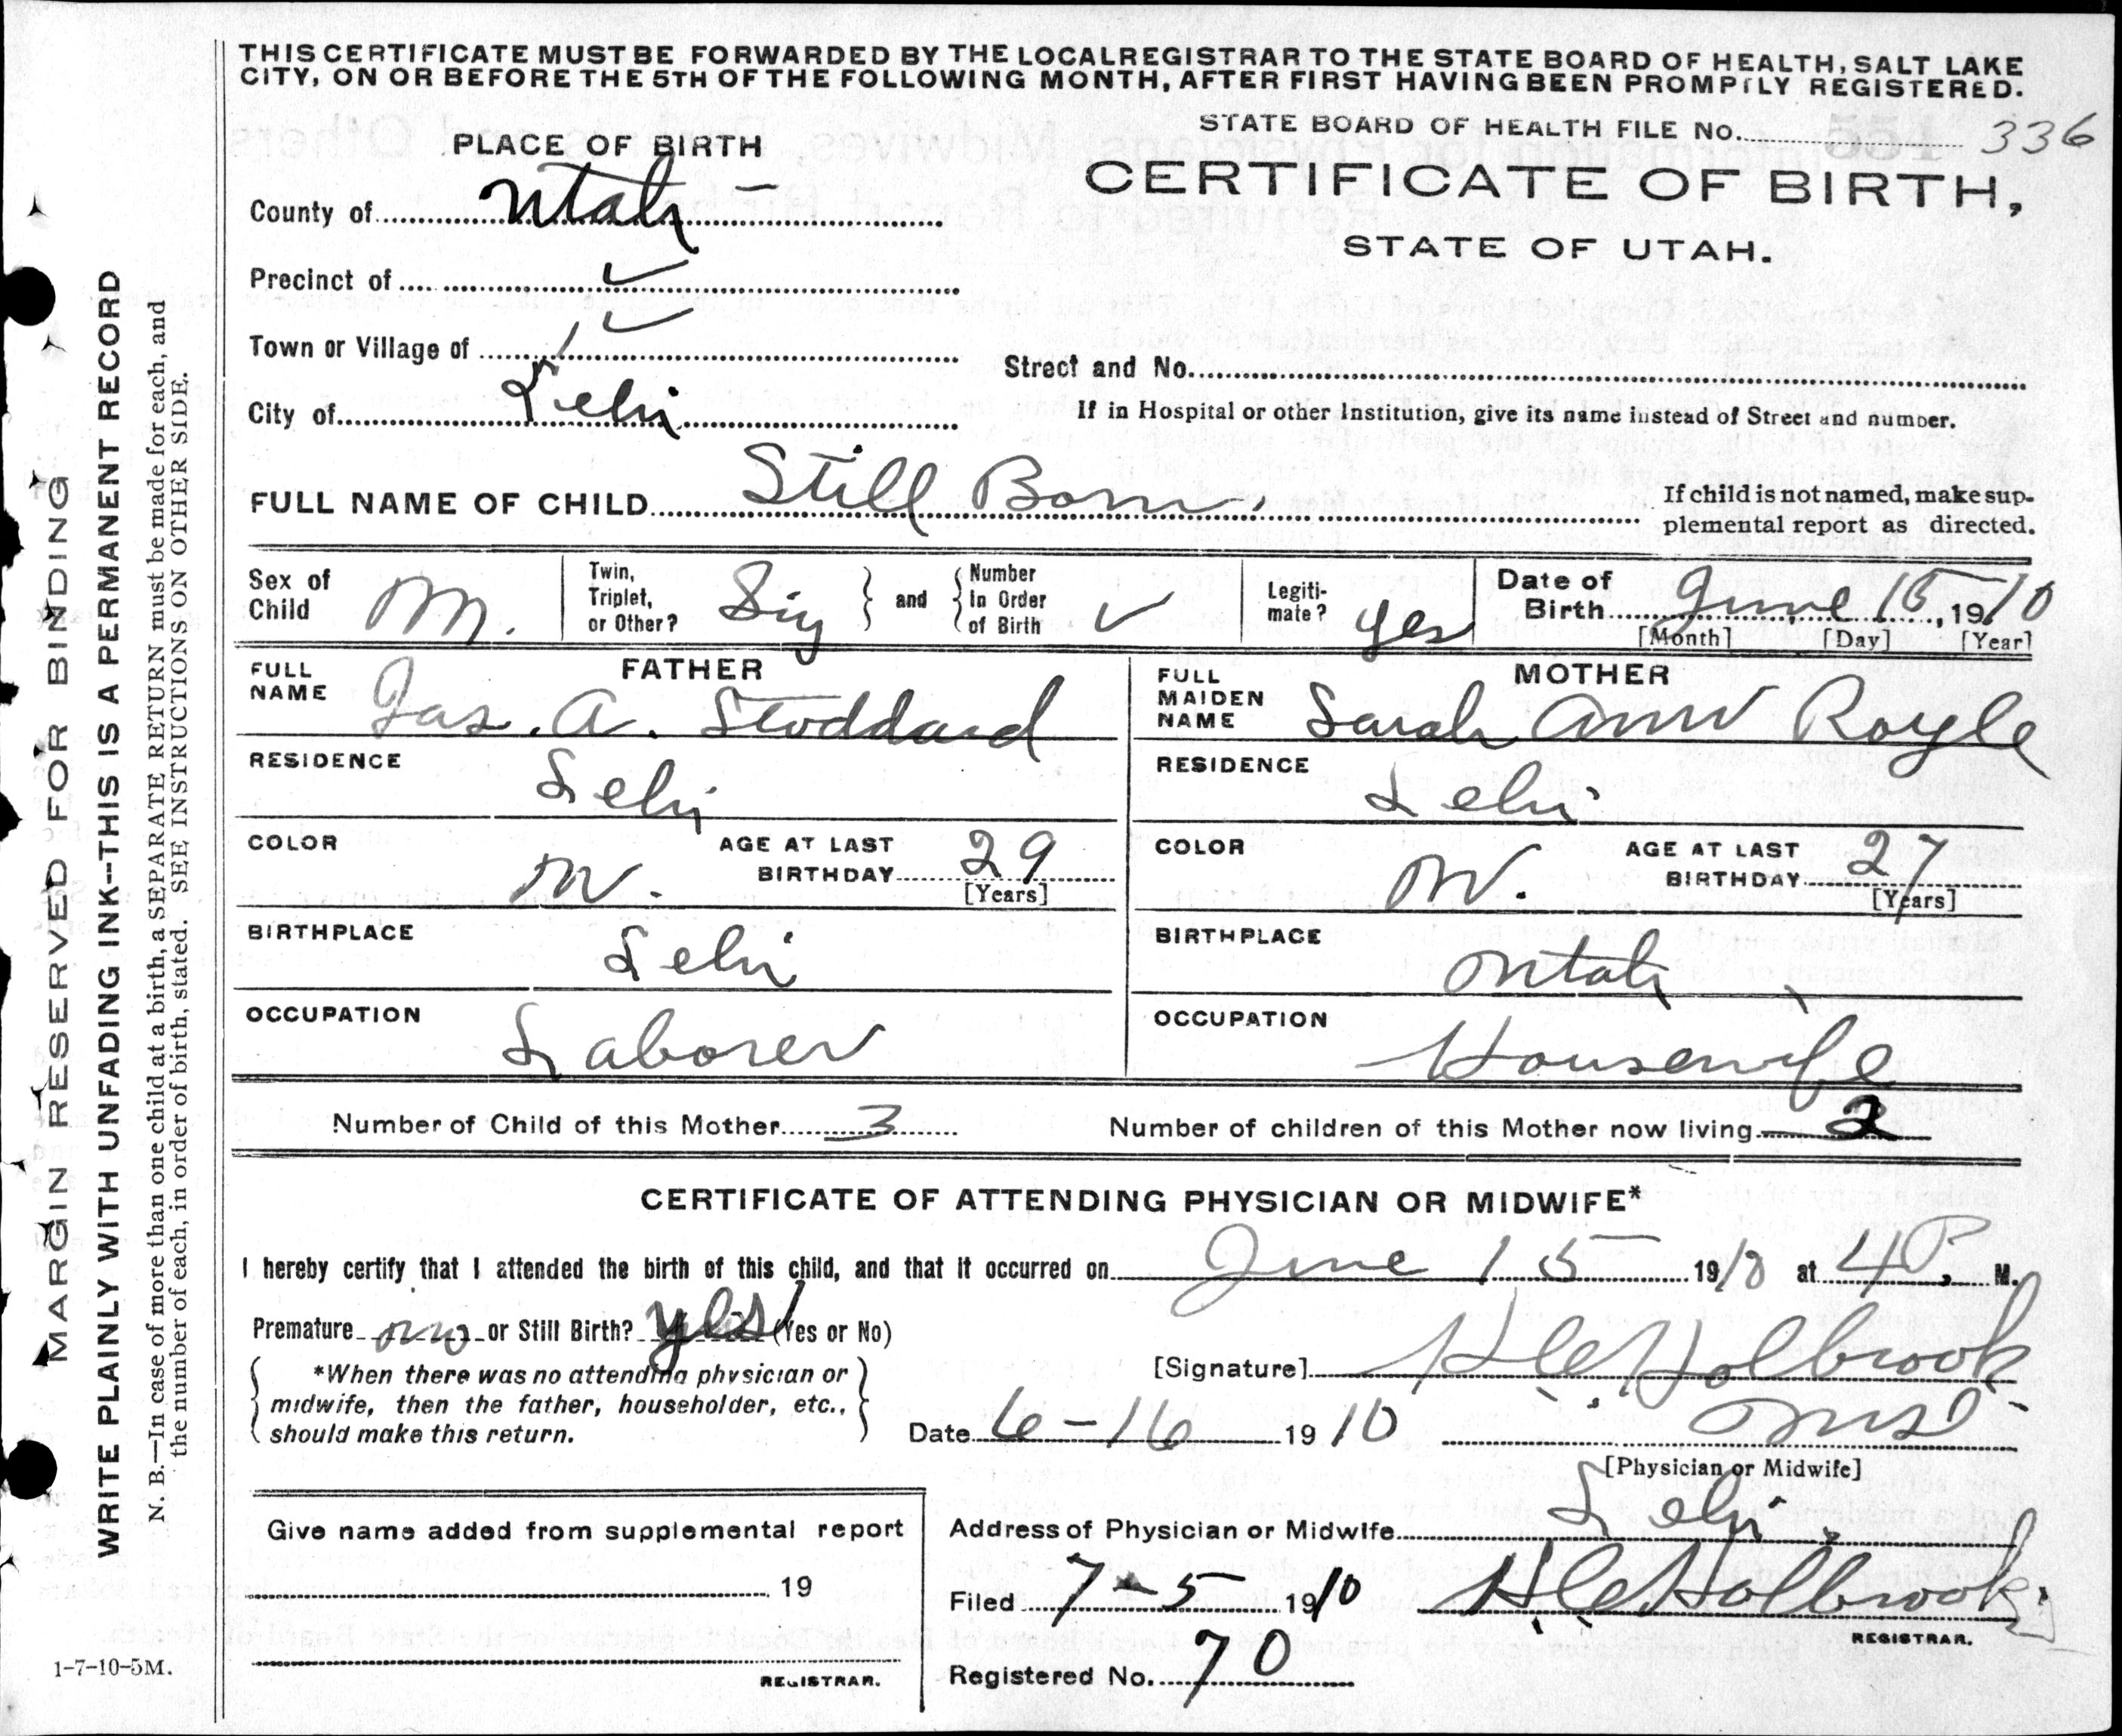 THIS CERTIFICATE MUST BE FORWARDED BY THE LOCAL REGISTRAR TO THE STATE BOARD OF HEALTH, SALT LAKE
CITY, ON OR BEFORE THE 5TH OF THE FOLLOWING MONTH, AFTER FIRST HAVING BEEN PROMPTLY REGISTERED.
STATE BOARD OF HEALTH FILE NO. 336
PLACE OF BIRTH
CERTIFICATE OF BIRTH,
STATE OF UTAH.
County of Utah
Precinct of ✓
Town or Village of ✓
Street and No.
City of Lehi
If in Hospital or other Institution, give its name instead of Street and number.
FULL NAME OF CHILD Still Born
If child is not named, make sup-
plemental report as directed.
Sex of Child M.
Twin, Triplet, or Other? Sig
and
Number In Order of Birth ✓
Legiti-mate? yes
Date of Birth June 15, 1910
[Month] [Day] [Year]
FATHER
FULL NAME Jas. A. Stoddard
RESIDENCE Lehi
COLOR W.
AGE AT LAST BIRTHDAY 29
[Years]
BIRTHPLACE Lehi
OCCUPATION Laborer
MOTHER
FULL MAIDEN NAME Sarah Ann Royle
RESIDENCE Lehi
COLOR W.
AGE AT LAST BIRTHDAY 27
[Years]
BIRTHPLACE Utah
OCCUPATION Housewife
Number of Child of this Mother 3
Number of children of this Mother now living 2
CERTIFICATE OF ATTENDING PHYSICIAN OR MIDWIFE*
I hereby certify that I attended the birth of this child, and that it occurred on June 15 1910 at 4 P. M.
Premature no or Still Birth? yes (Yes or No)
*When there was no attending physician or
midwife, then the father, householder, etc.,
should make this return.
[Signature] H C Holbrook
Date 6-16 1910
[Physician or Midwife]
Give name added from supplemental report
19
REGISTRAR.
Address of Physician or Midwife Lehi
Filed 7-5 1910 H C Holbrook
REGISTRAR.
Registered No. 70
1-7-10-5M.
MARGIN RESERVED FOR BINDING
WRITE PLAINLY WITH UNFADING INK--THIS IS A PERMANENT RECORD
N. B.—In case of more than one child at a birth, a SEPARATE RETURN must be made for each, and
the number of each, in order of birth, stated. SEE INSTRUCTIONS ON OTHER SIDE.